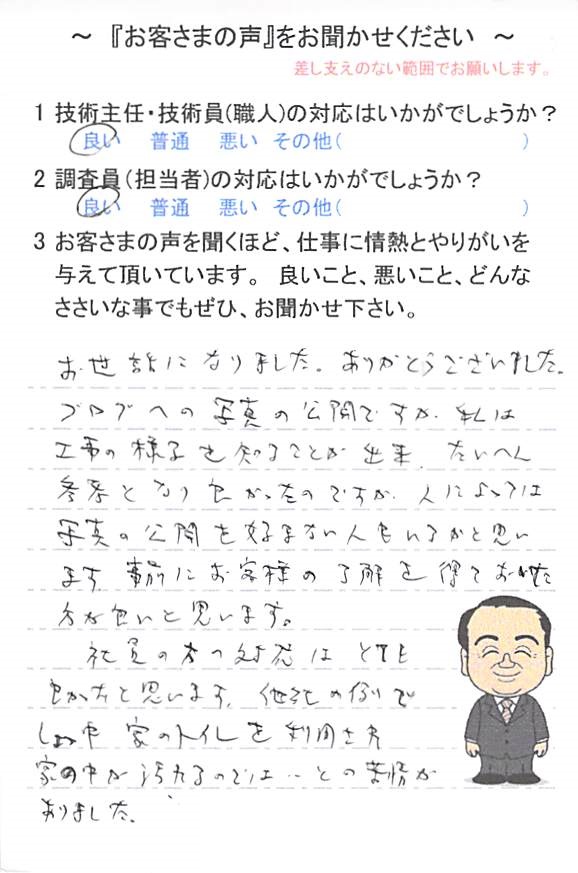 ～ 『お客さまの声』をお聞かせください ～
差し支えのない範囲でお願いします。
1 技術主任・技術員(職人)の対応はいかがでしょうか？
良い 普通 悪い その他( )
2 調査員(担当者)の対応はいかがでしょうか？
良い 普通 悪い その他( )
3 お客さまの声を聞くほど、仕事に情熱とやりがいを
与えて頂いています。 良いこと、悪いこと、どんな
ささいな事でもぜひ、お聞かせ下さい。
お世話になりました。ありがとうございました。
ブログへの写真の公開ですが、私は
工事の様子を知ることが出来、たいへん
参考となり良かったのですが、人によっては
写真の公開を好まない人もいるかと思い
ます。事前にお客様の了解を得ておいた
方が良いと思います。
社員の方の対応はとても
良かったと思います。他社の例で
しょうが 家のトイレを利用され
家の中が汚れるのでは…との
ありました。